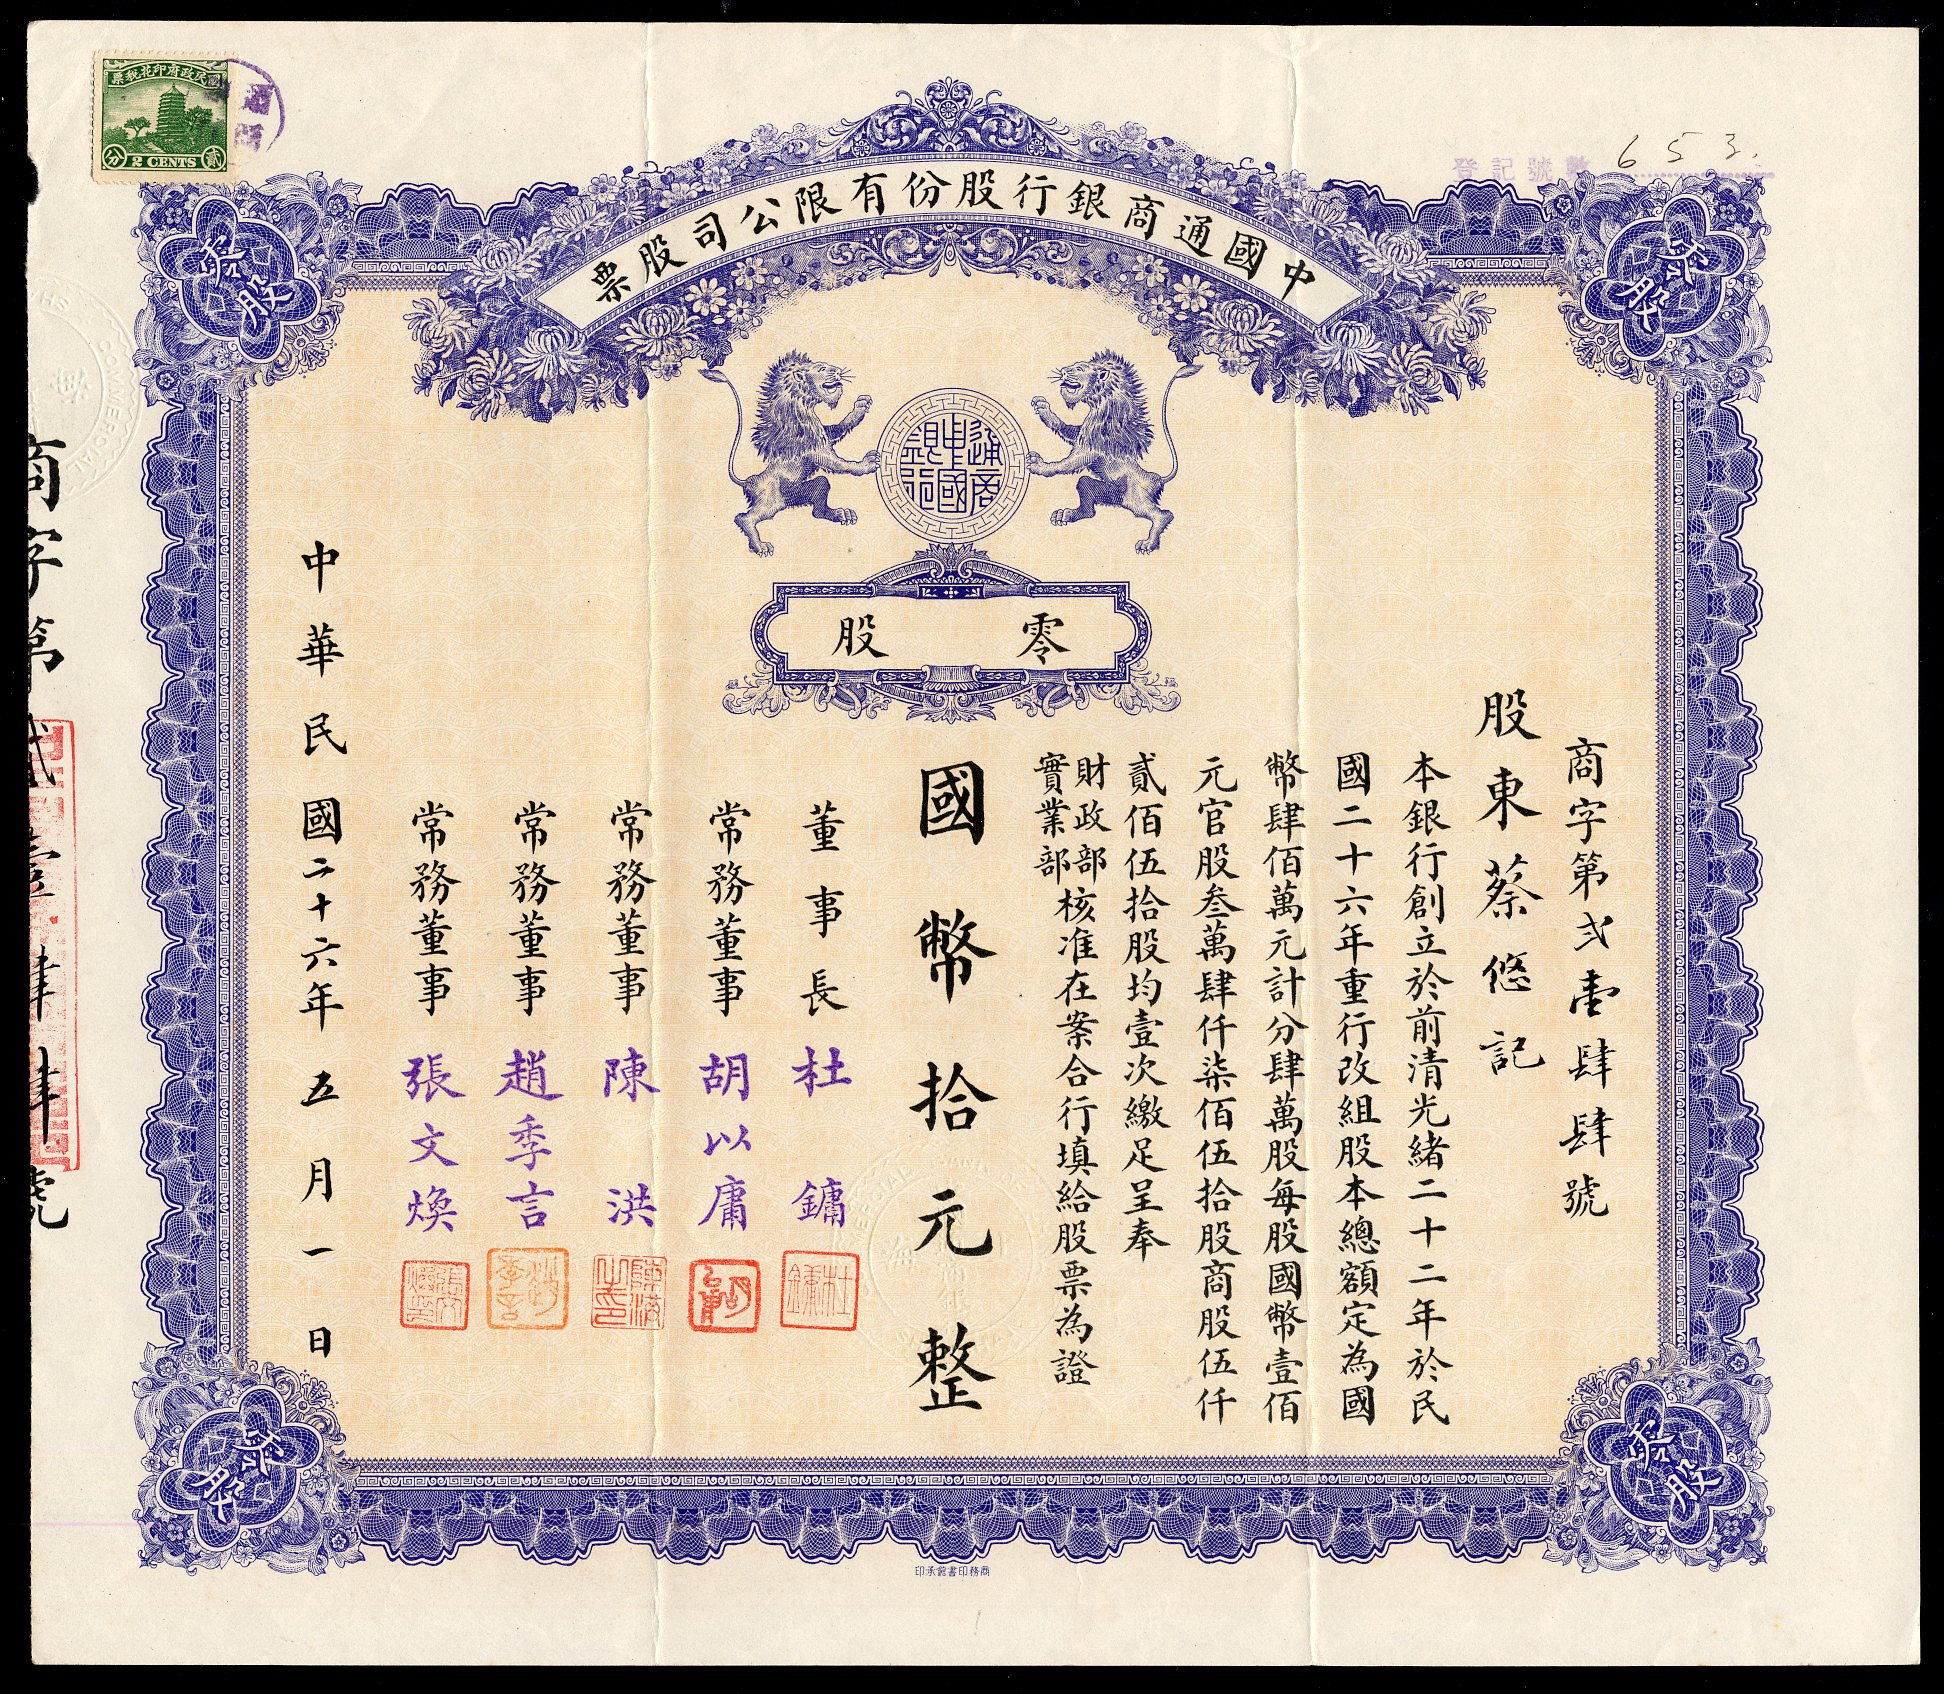 國民政府印花稅票
貳
2 CENTS
分
登記號數 653.
中國通商銀行股份有限公司股票
零股
零股
通商
中國
銀行
零股
商字第弍壹肆肆號
股東蔡悠記
本銀行創立於前清光緒二十二年於民
國二十六年重行改組股本總額定為國
幣肆佰萬元計分肆萬股每股國幣壹佰
元官股叁萬肆仟柒佰伍拾股商股伍仟
貳佰伍拾股均壹次繳足呈奉
財政部
實業部
核准在案合行填給股票為證
國幣拾元整
董事長 杜鏞
常務董事 胡以庸
常務董事 陳洪
常務董事 趙季言
常務董事 張文煥
中華民國二十六年五月一日
零股
零股
商字第貳壹肆肆號
COMMERCIAL
商務印書館承印